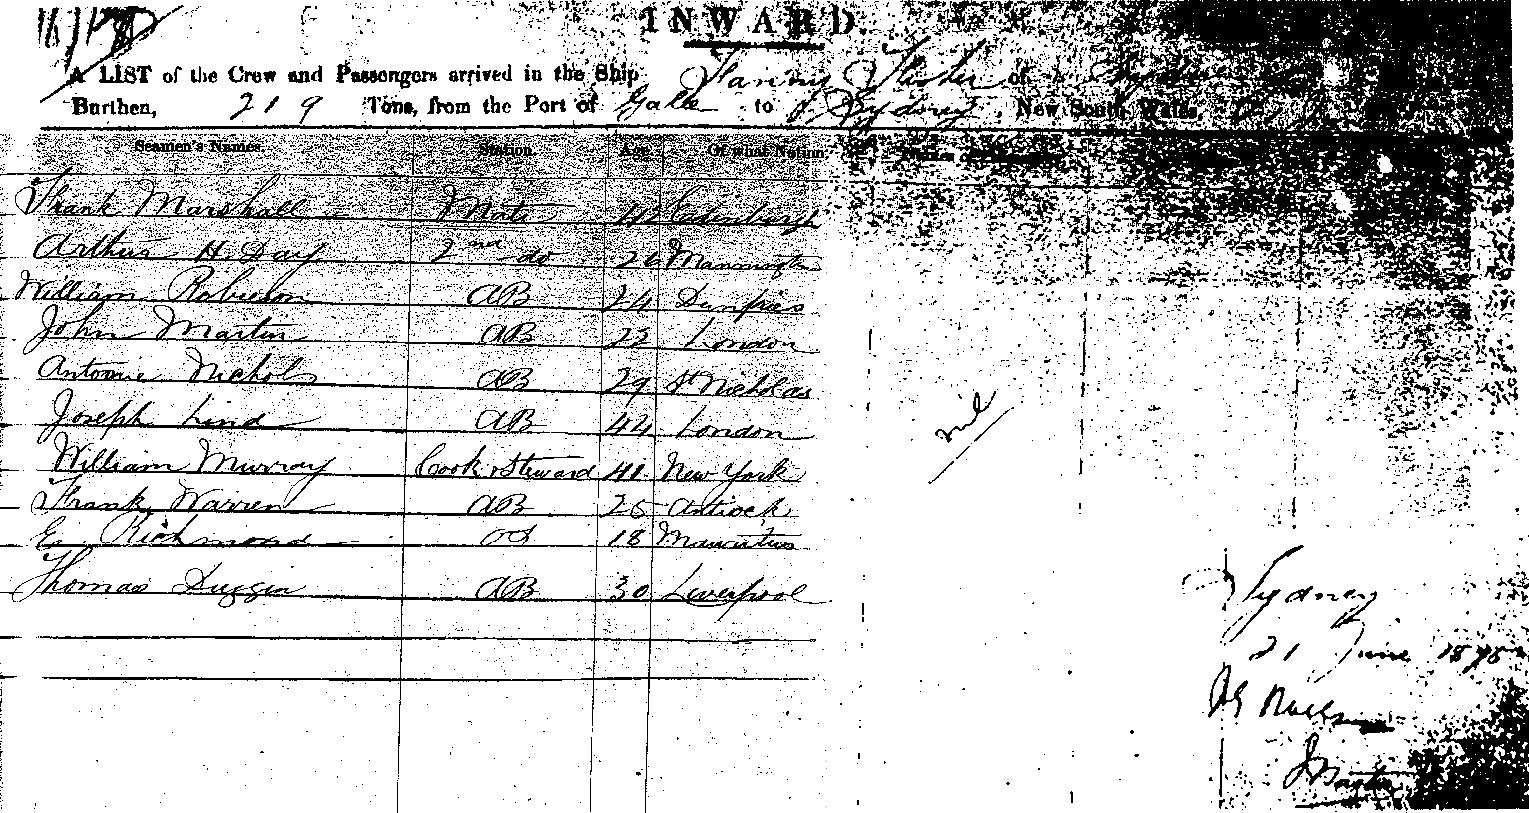 INWARD.
A LIST of the Crew and Passengers arrived in the Ship Fanny Fisher of
Burthen, 219 Tons, from the Port of Galle to Sydney, New South Wales,
Seamen's Names Station Age Of what Nation
Frank Marshall Mate
Arthur H. Day 2nd do 26
William Robinson AB 24 Dumfries
John Martin AB 22 London
Antonie Nichols AB 29 St Nicholas
Joseph Lind AB 44 London
William Murray Cook & Steward 41 New York
Frank Warren AB 25 Antioch
E. Richmond OS 18 Mauritius
Thomas Duggin AB 30 Liverpool
nil
Sydney
21 June 1875